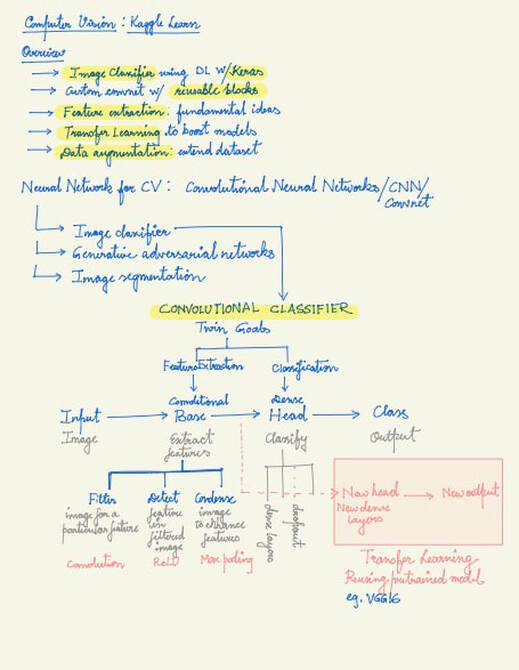 Computer Vision : Kaggle Learn
Overview
→ Image Classifier using DL w/ Keras
→ Custom convnet w/ reusable blocks
→ Feature extraction: fundamental ideas
→ Transfer Learning to boost models
→ Data augmentation: extend dataset
Neural Network for CV : Convolutional Neural Networks/CNN/
Convnet
→ Image classifier
→ Generative adversarial networks
→ Image segmentation
CONVOLUTIONAL CLASSIFIER
Twin Goals
Feature Extraction
Classification
Input → Convolutional Base → Dense Head → Class
Image
Extract
features
Classify
Output
Filter
image for a
particular feature
Convolution
Detect
feature
in
filtered
image
ReLU
Condense
image
to enhance
features
Max pooling
dense layers
dropout
New head → New output
New dense
layers
Transfer Learning
Reusing pretrained model
eg. VGG16